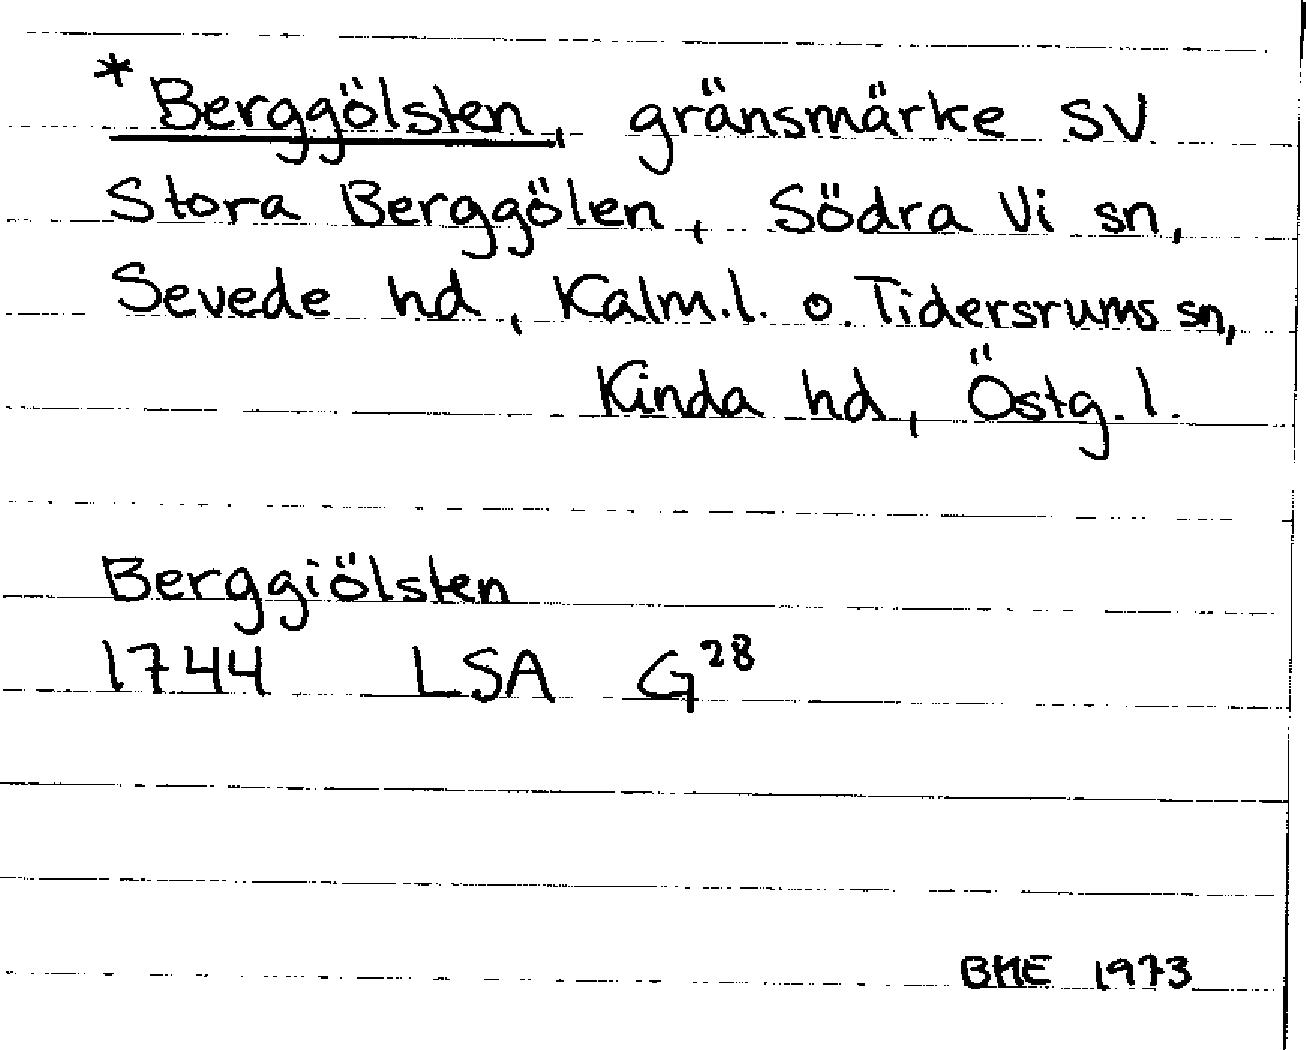 *Berggölsten, gränsmärke SV
Stora Berggölen, Södra Vi sn,
Sevede hd, Kalm.l. o. Tidersrums sn,
Kinda hd, Östg.l.
Berggiölsten
1744 LSA G28
BME 1973